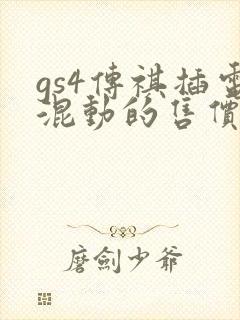 gs4傳祺插電
混動的售價
磨劍少爺